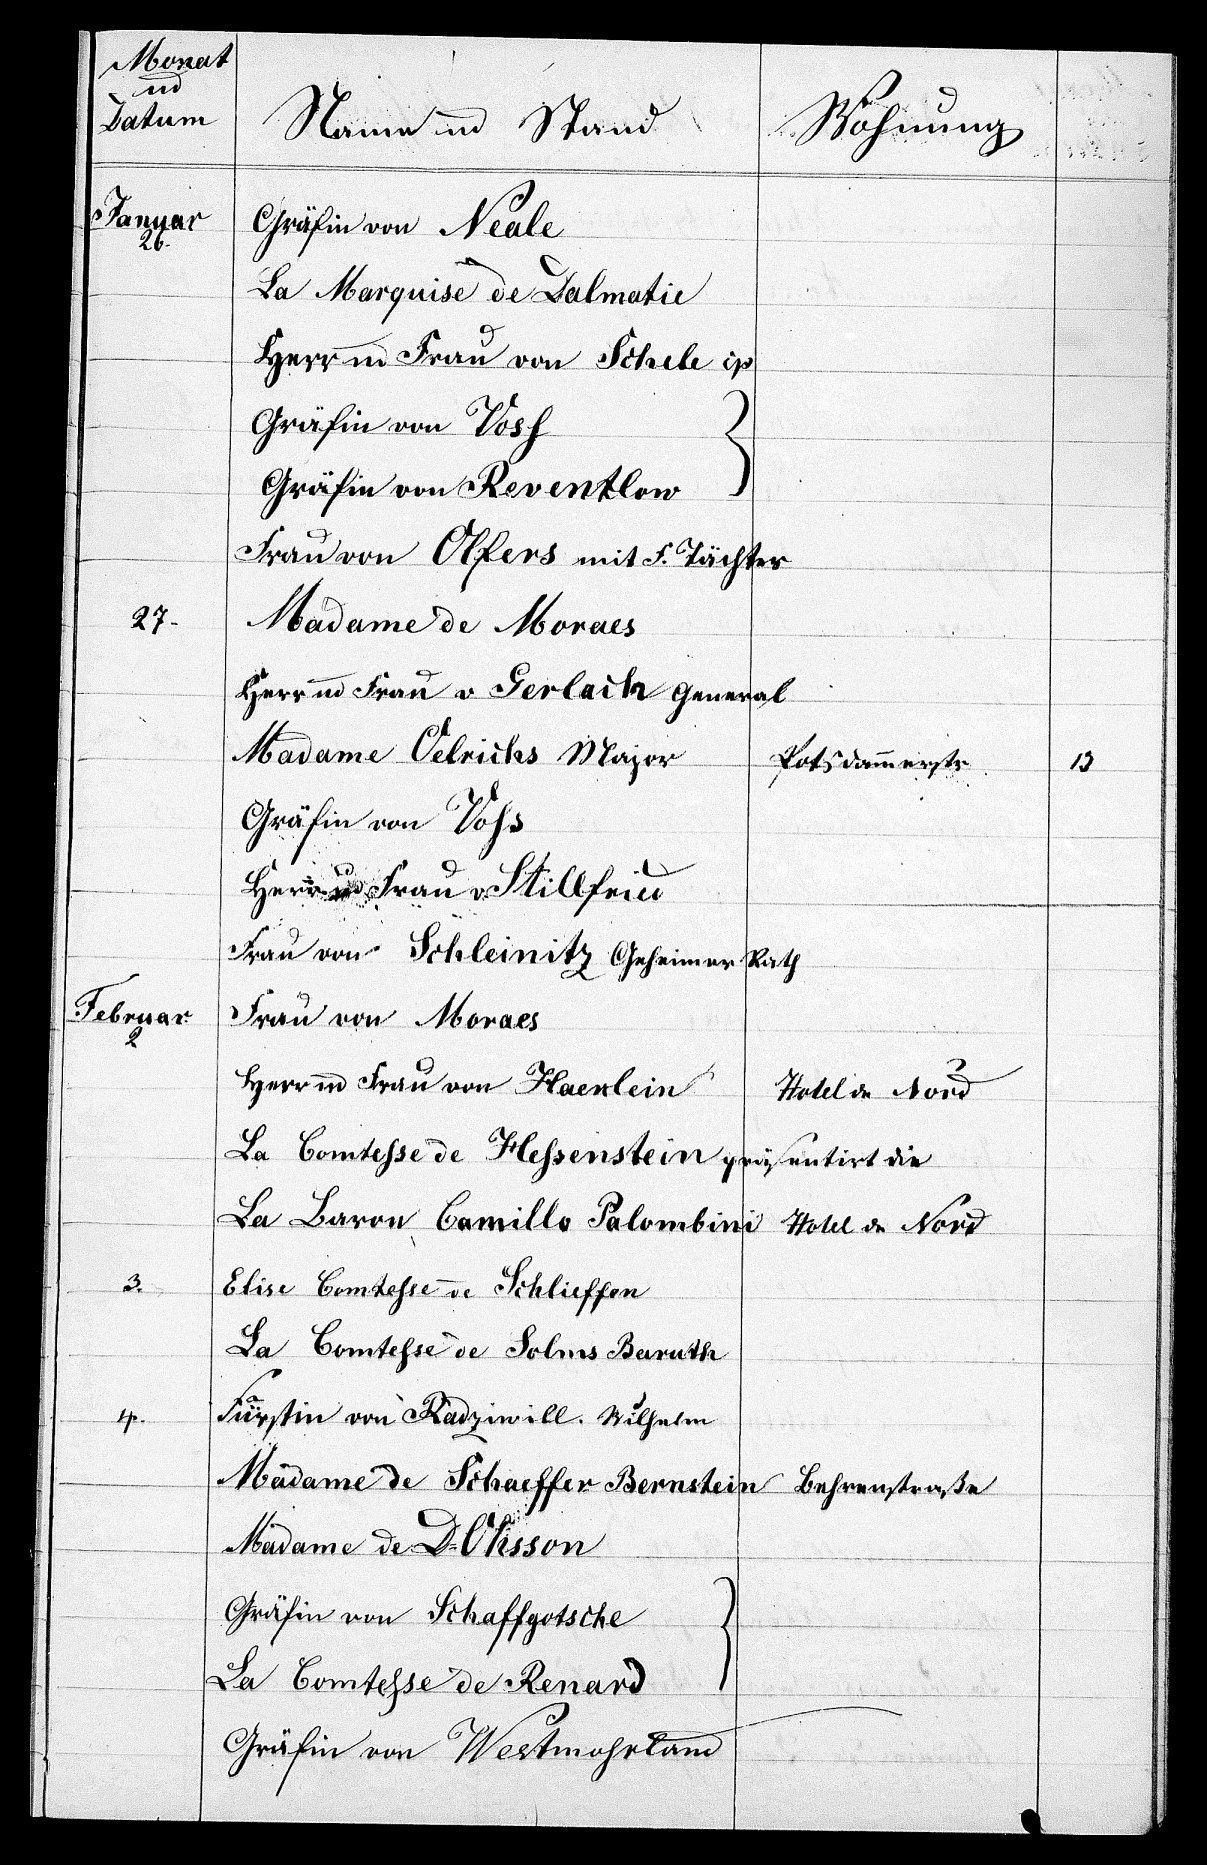 Monat
und
Datum
Name und Stand
Wohnung
Januar
26.
Gräfin von Neale
La Marquise de Dalmatie
Herr und Frau von Schele
Gräfin von Voss
Gräfin von Reventlow
Frau von Olfers mit F. Tächter
27.
Madame de Moraes
Herr und Frau v Gerlach General
Madame Oelrichs Major Potsdammerstr 13
Gräfin von Vohs
Herr und Frau v. Stillfried
Frau von Schleinitz Geheimer Rath
Februar
2
Frau von Moraes
Herr und Frau von Haenlein Hotel de Nord
La Comtesse de Hessenstein präsentirt die
La Baron Camillo Palombini Hotel de Nord
3. Elise Comtesse de Schlieffen
La Comtesse de Solms Baruth
4. Fürstin von Radziwill. Wilhelm
Madame de Schaeffer Bernstein Behrenstraße
Madame de D'Ohsson
Gräfin von Schaffgotsche
La Comtesse de Renard
Gräfin von Westmohrland